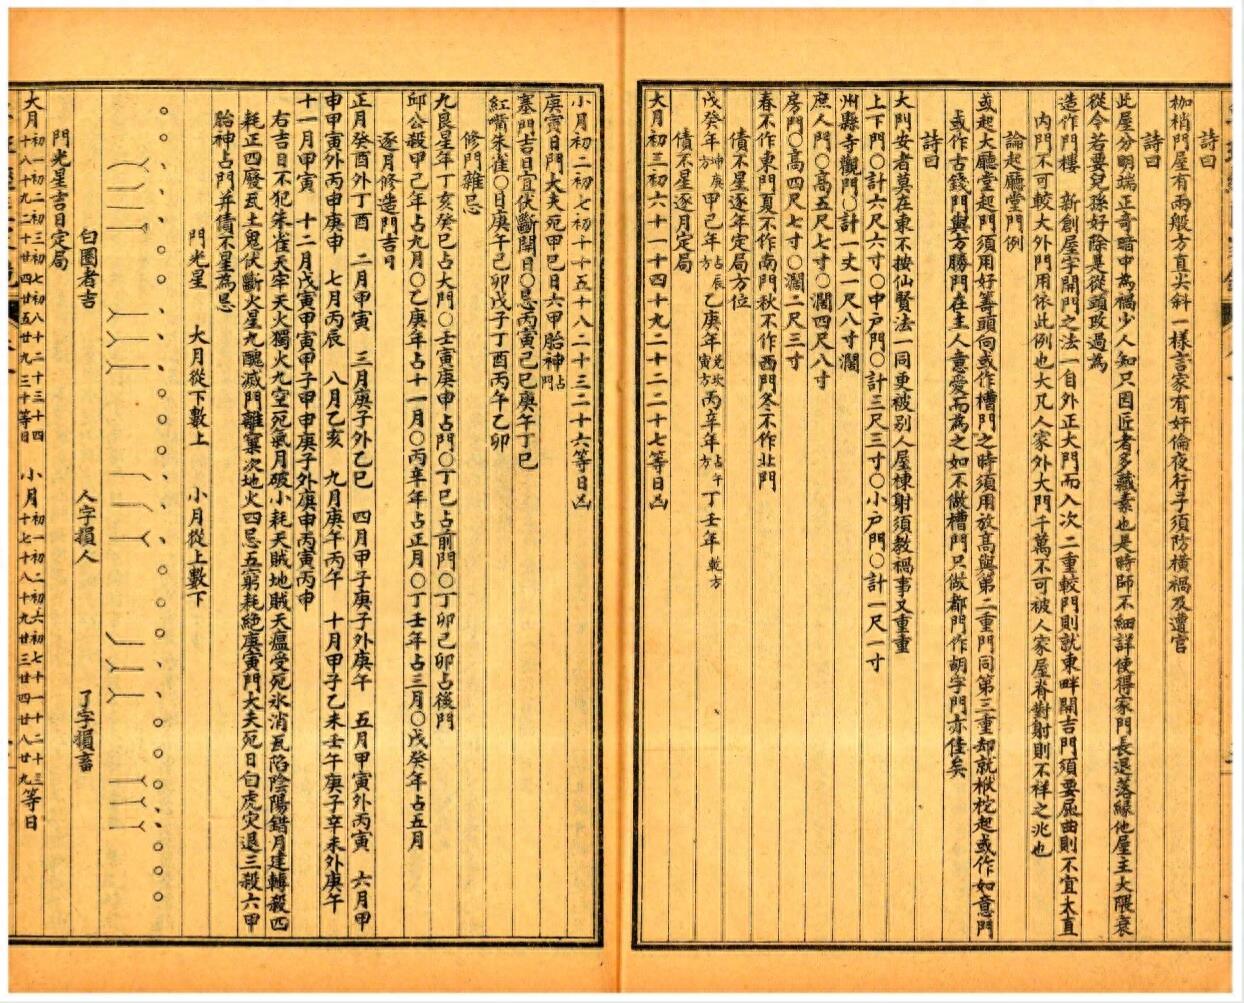 詩曰
枷梢門屋有兩般方直尖斜一樣言家有奸倫夜行子須防橫禍及遭官
詩曰
此屋分明端正奇暗中為禍少人知只因匠者多藏素也是時師不細詳使得家門長退落緣他屋主大隈衰
從今若要兒孫好除是從頭改過為
造作門樓　新創屋宇開門之法一自外正大門而入次二重較門則就東畔開吉門須要屈曲則不宜大直
內門不可較大外門用依此例也大凡人家外大門千萬不可被人家屋脊對射則不祥之兆也
論起廳堂門例
或起大廳堂起門須用好筹頭向或作槽門之時須用放高與第二重門同第三重却就栿柁起或作如意門
或作古錢門與方勝門在主人意愛而為之如不做槽門只做都門作胡字門亦佳矣
詩曰
大門安者莫在東不按仙賢法一同更被别人屋棟射須教禍事又重重
上下門〇計六尺六寸〇中戶門〇計三尺三寸〇小戶門〇計一尺一寸
州縣寺觀門〇計一丈一尺八寸濶
庶人門〇高五尺七寸〇濶四尺八寸
房門〇高四尺七寸〇濶二尺三寸
春不作東門夏不作南門秋不作西門冬不作北門
債不星逐年定局方位
戊癸年坤庚方甲己年占辰方乙庚年兌坎寅方丙辛年占午方丁壬年乾方
債不星逐月定局
大月初三初六十一十四十九二十二二十七等日凶
小月初二初七初十十五十八二十三二十六等日凶
庚寅日門大夫死甲巳日六甲胎神占門
塞門吉日宜伏斷閉日〇忌丙寅己巳庚午丁巳
紅嘴朱雀〇日庚午己卯戊子丁酉丙午乙卯
修門雜忌
九良星年丁亥癸巳占大門〇壬寅庚申占門〇丁巳占前門〇丁卯己卯占後門
邱公殺甲己年占九月〇乙庚年占十一月〇丙辛年占正月〇丁壬年占三月〇戊癸年占五月
逐月修造門吉日
正月癸酉外丁酉　二月甲寅　三月庚子外乙巳　四月甲子庚子外庚午　五月甲寅外丙寅　六月甲
申甲寅外丙申庚申　七月丙辰　八月乙亥　九月庚午丙午　十月甲子乙未壬午庚子辛未外庚午
十一月甲寅　十二月戊寅甲寅甲子甲申庚子外庚申丙寅丙申
右吉日不犯朱雀天牢天火獨火九空死氣月破小耗天賊地賊天瘟受死氷消瓦陷陰陽錯月建轉殺四
耗正四廢瓦土鬼伏斷火星九醜滅門離窠次地火四忌五窮耗絕庚寅門大夫死日白虎灾退三殺六甲
胎神占門并債不星為忌
門光星　大月從下數上　小月從上數下
白圈者吉　人字損人　丫字損畜
門光星吉日定局
大月初一初二初三初七初八十二十三十四十八十九二十廿四廿五廿九三十等日　小月初一初二初六初七十一十二十三十七十八十九廿三廿四廿八廿九等日